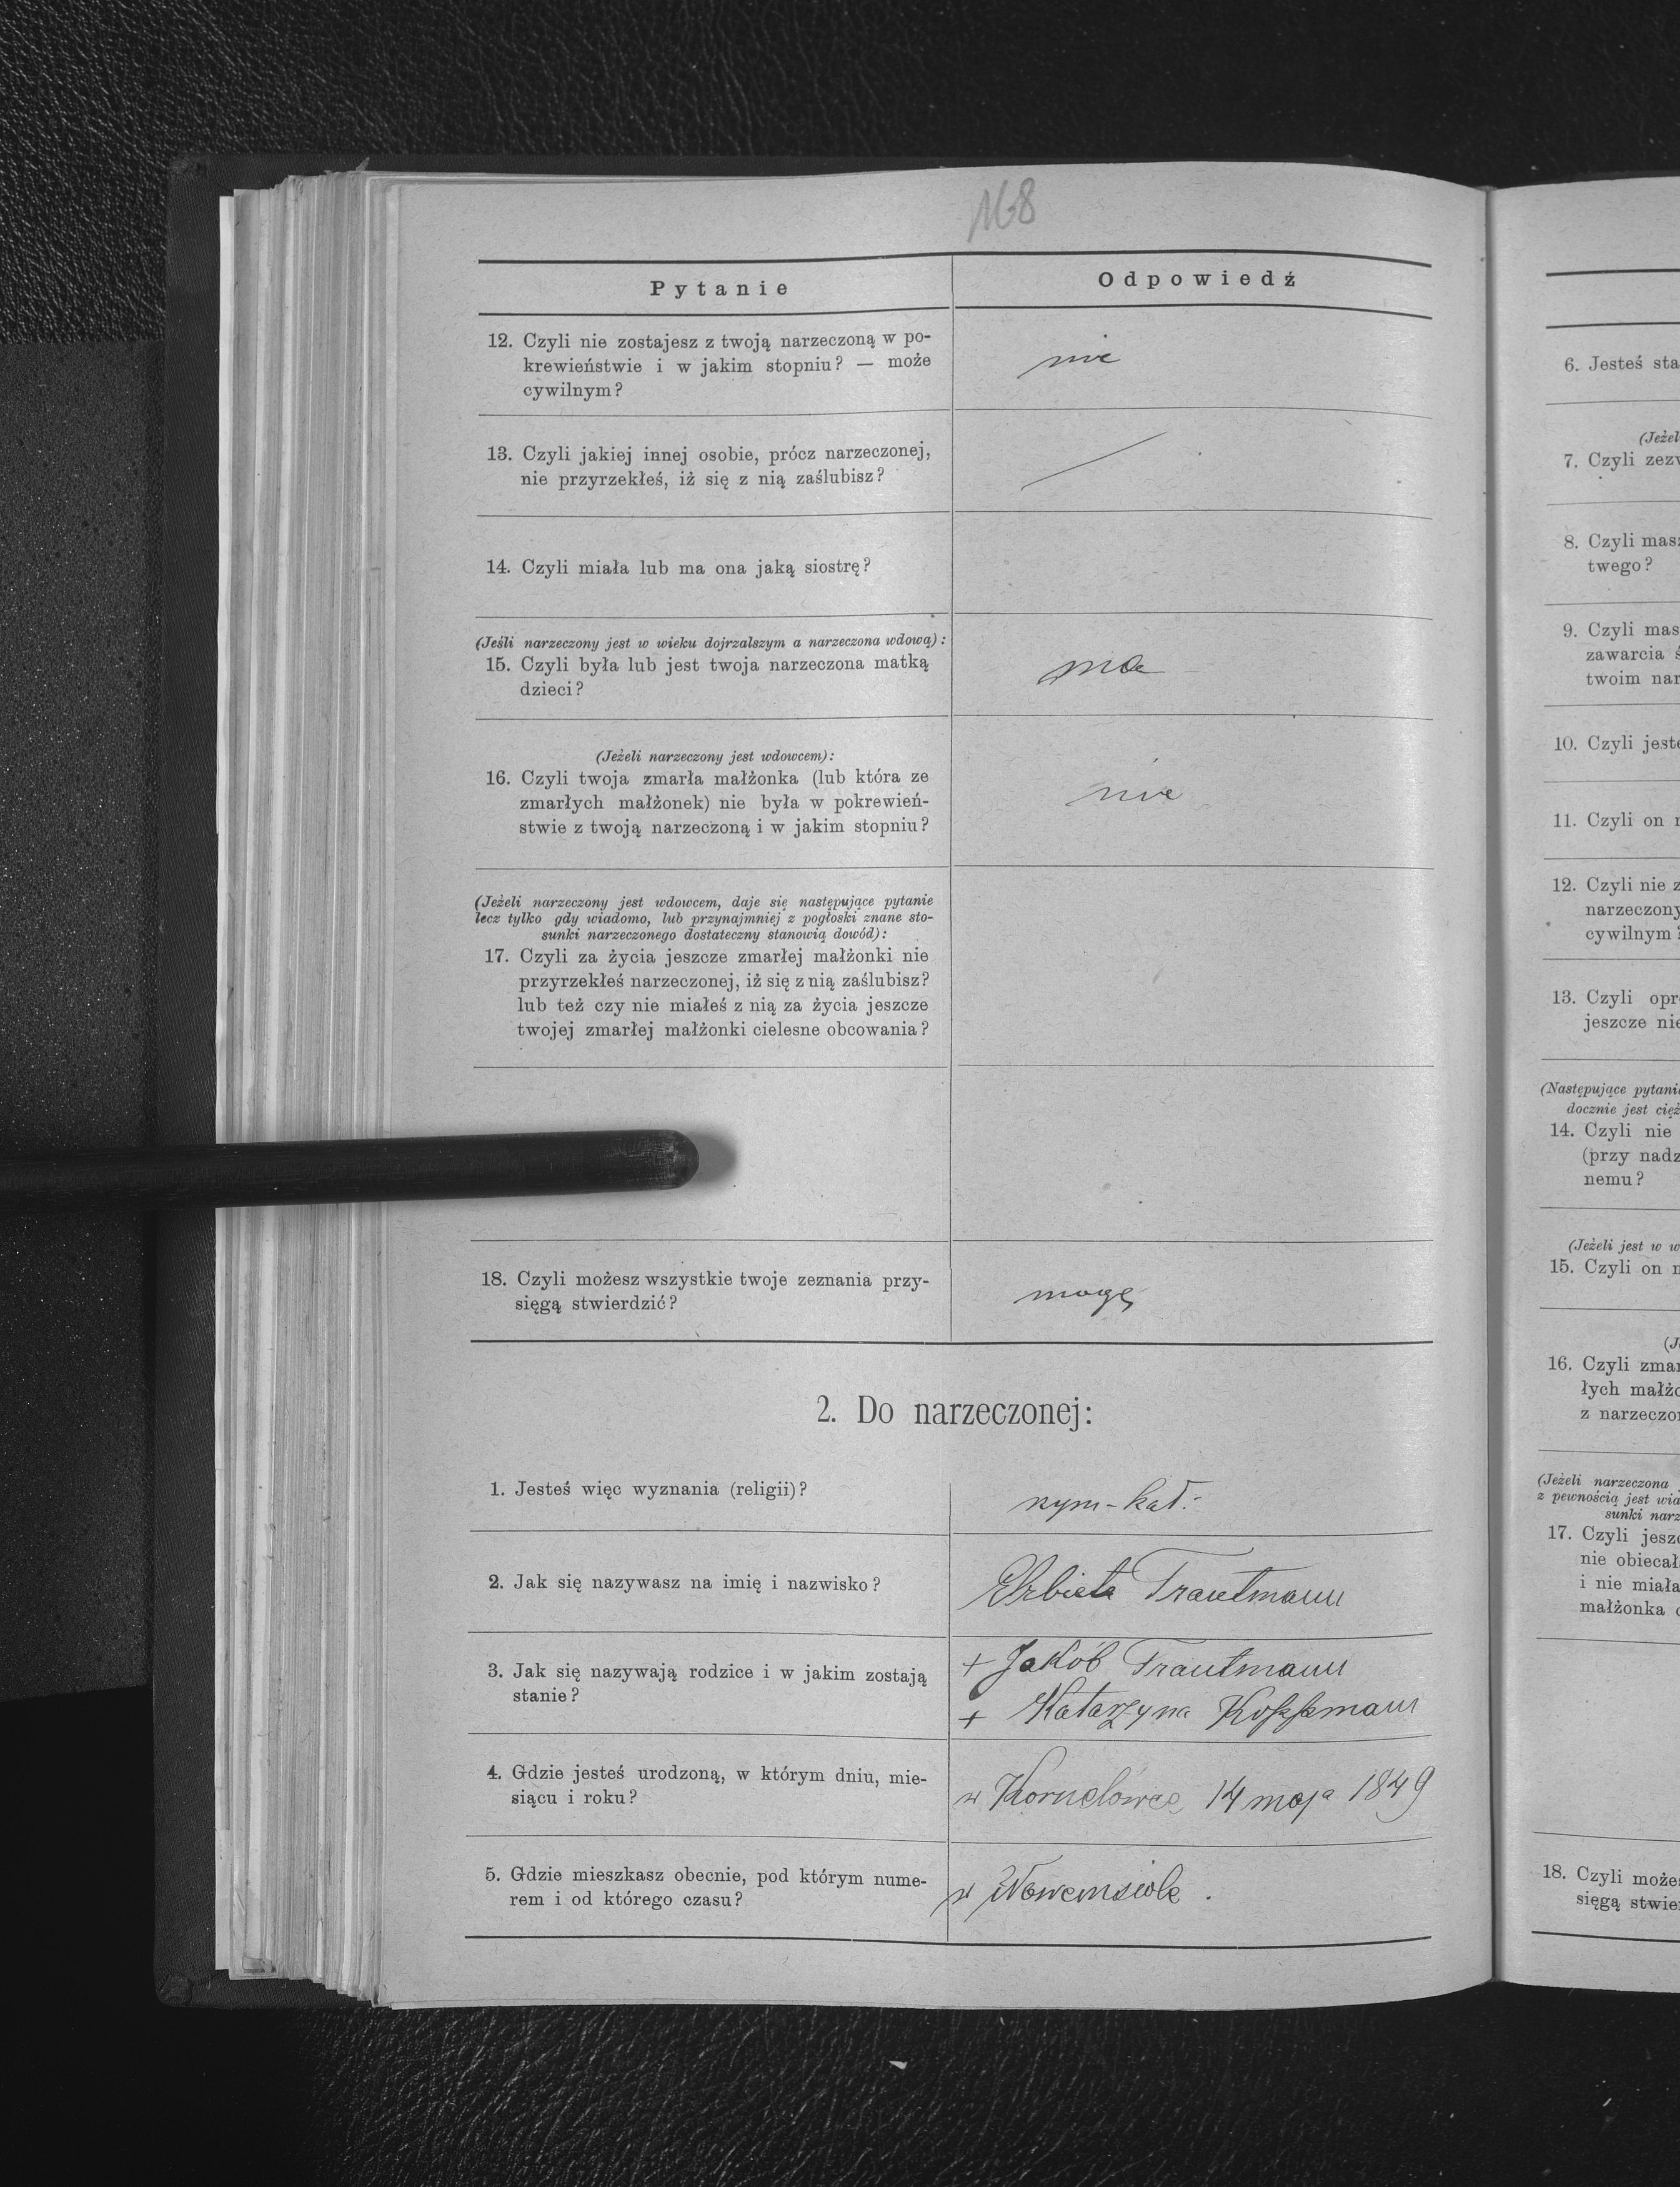 168
Pytanie
Odpowiedź
12. Czyli nie zostajesz z twoją narzeczoną w po-
krewieństwie i w jakim stopniu? — może
cywilnym?
nie
13. Czyli jakiej innej osobie, prócz narzeczonej,
nie przyrzekłeś, iż się z nią zaślubisz?
14. Czyli miała lub ma ona jaką siostrę?
(Jeśli narzeczony jest w wieku dojrzalszym a narzeczona wdową):
15. Czyli była lub jest twoja narzeczona matką
dzieci?
ma
(Jeżeli narzeczony jest wdowcem):
16. Czyli twoja zmarła małżonka (lub która ze
zmarłych małżonek) nie była w pokrewień-
stwie z twoją narzeczoną i w jakim stopniu?
nie
(Jeżeli narzeczony jest wdowcem, daje się następujące pytanie
lecz tylko gdy wiadomo, lub przynajmniej z pogłoski znane sto-
sunki narzeczonego dostateczny stanowią dowód):
17. Czyli za życia jeszcze zmarłej małżonki nie
przyrzekłeś narzeczonej, iż się z nią zaślubisz?
lub też czy nie miałeś z nią za życia jeszcze
twojej zmarłej małżonki cielesne obcowania?
18. Czyli możesz wszystkie twoje zeznania przy-
sięgą stwierdzić?
mogę
2. Do narzeczonej:
1. Jesteś więc wyznania (religii)?
rym-kat:
2. Jak się nazywasz na imię i nazwisko?
Elżbieta Trautmann
3. Jak się nazywają rodzice i w jakim zostają
stanie?
+ Jakób Trautmann
+ Katarzyna
4. Gdzie jesteś urodzoną, w którym dniu, mie-
siącu i roku?
w Kornelówce 14 maja 1849
5. Gdzie mieszkasz obecnie, pod którym nume-
rem i od którego czasu?
w Nowemsiole.
6. Jesteś sta
(Jeżel
7. Czyli zezw
8. Czyli mas
twego?
9. Czyli mas
zawarcia ś
twoim nar
10. Czyli jeste
11. Czyli on
12. Czyli nie z
narzeczony
cywilnym?
13. Czyli opr
jeszcze nie
(Następujące pytani
docznie jest cięż
14. Czyli nie
(przy nadz
nemu?
(Jeżeli jest w w
15. Czyli on
(J
16. Czyli zmar
łych małżo
z narzeczo
(Jeżeli narzeczona
z pewnością jest wia
sunki narz
17. Czyli jeszc
nie obiecał
i nie miała
małżonka
18. Czyli może
sięgą stwie